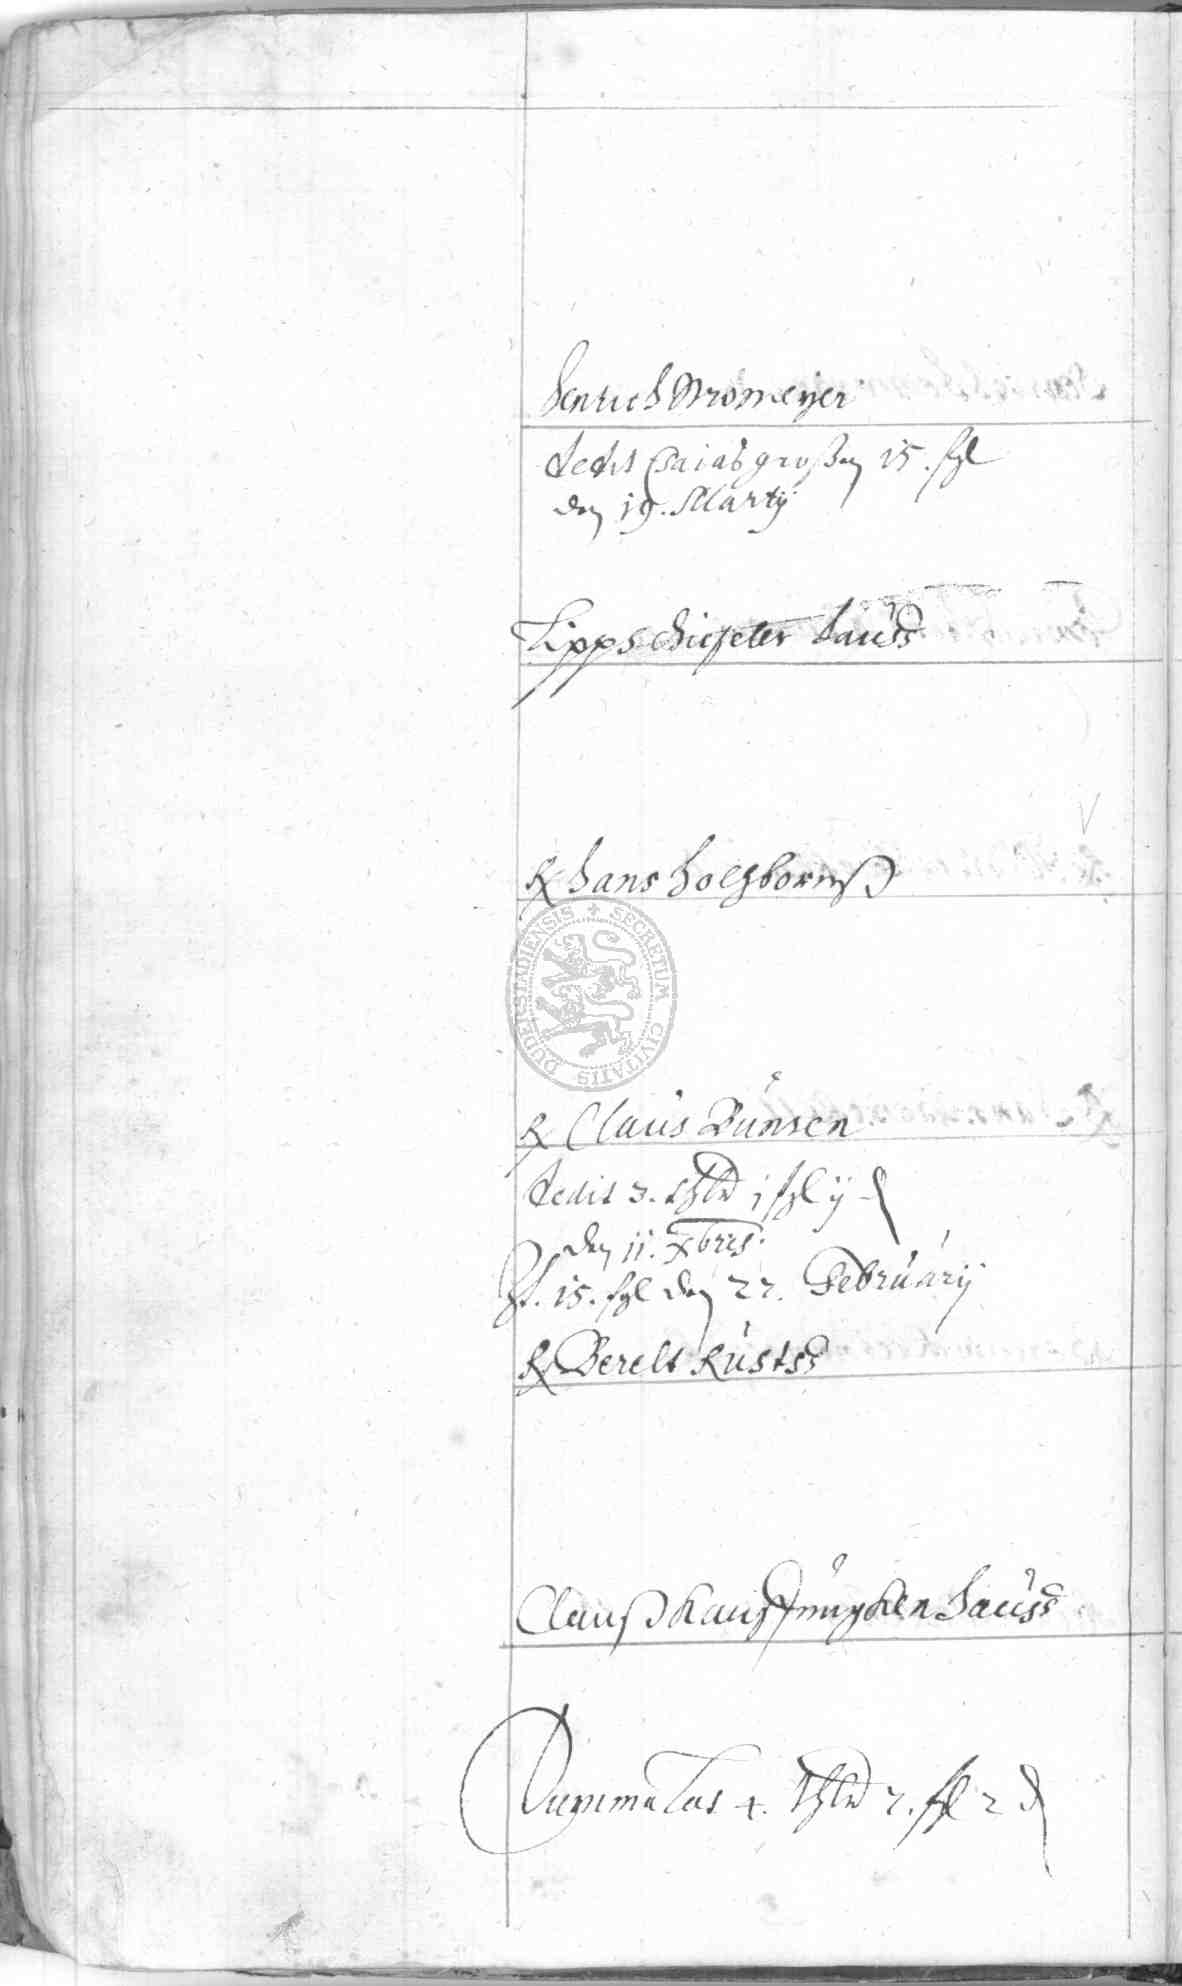 Henrich Bromeyer
dedit Esaias großen 15. ßl
den 19. Martij
Lipps Hauss
R Hans Holzbornß
SECRETUM CIVITATIS DUDERSTADIENSIS
R Claus Bunsen
dedit 3. thlr j ßl ij d
den 11. Xbris.
It. 15. ßl den 22. February
R Berelt Kustss
Clauß Hauss
Summa Lat 4. thlr 7. ßl 2 d